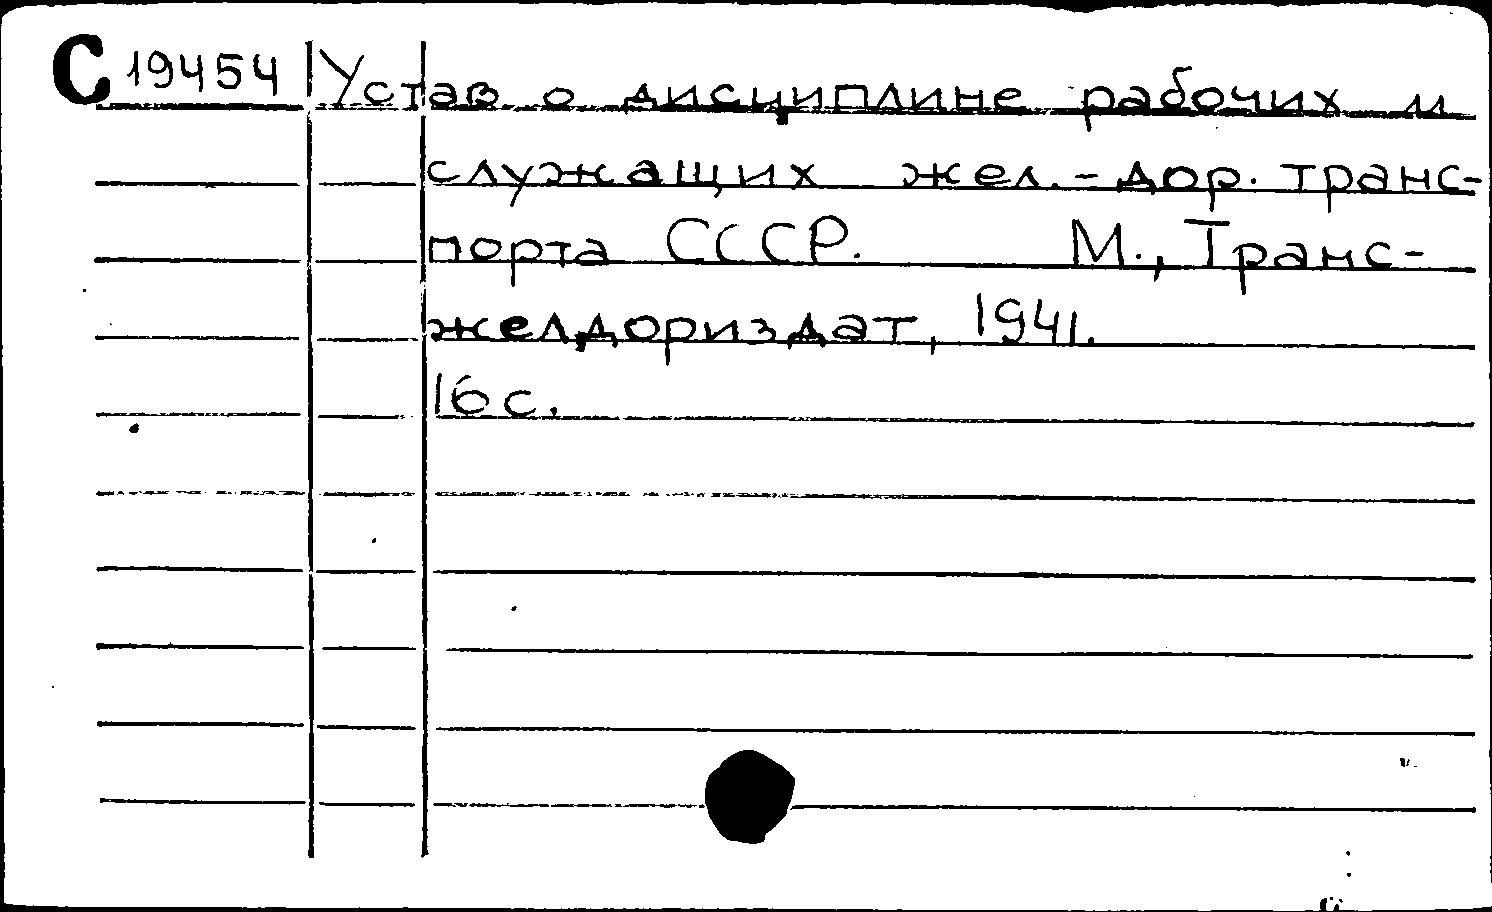 С 19454 Устав о дисциплине рабочих и
служащих жел.-дор. транс-
порта СССР. М., Транс-
желдориздат, 1941.
16 с.